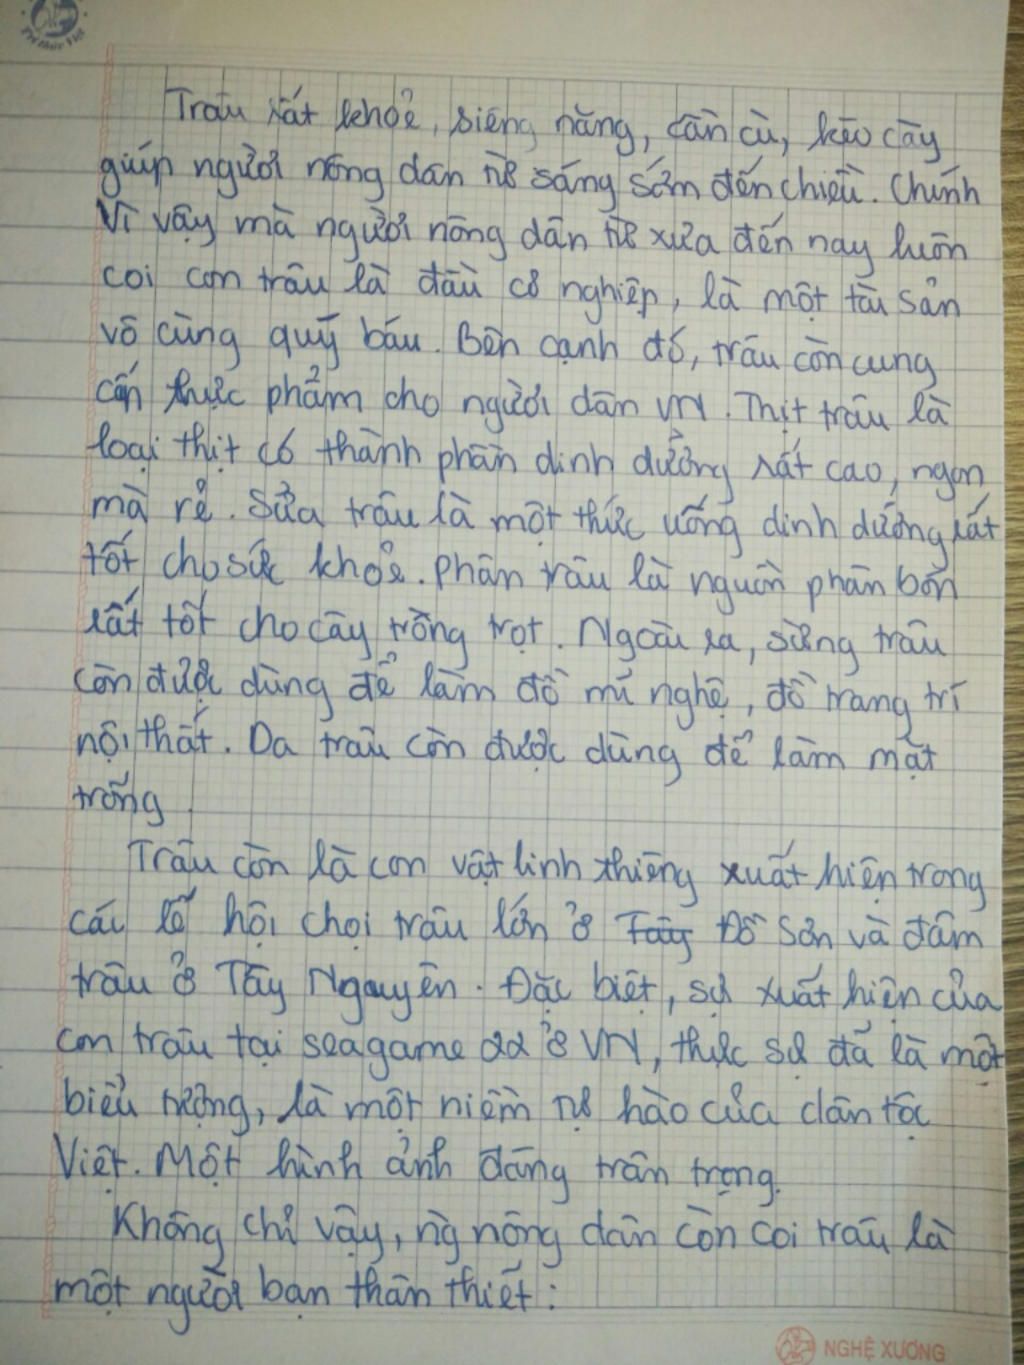 Trí thức Việt
Trâu rất khỏe, siêng năng, cần cù, kéo cày
giúp người nông dân từ sáng sớm đến chiều. Chính
Vì vậy mà người nông dân từ xưa đến nay luôn
coi con trâu là đầu cơ nghiệp, là một tài sản
vô cùng quý báu. Bên cạnh đó, trâu còn cung
cấp thực phẩm cho người dân VN. Thịt trâu là
loại thịt có thành phần dinh dưỡng rất cao, ngon
mà rẻ. Sữa trâu là một thức uống dinh dưỡng rất
tốt cho sức khỏe. Phân trâu là nguồn phân bón
rất tốt cho cây trồng trọt. Ngoài ra, sừng trâu
còn được dùng để làm đồ mĩ nghệ, đồ trang trí
nội thất. Da trâu còn được dùng để làm mặt
trống
Trâu còn là con vật linh thiêng xuất hiện trong
các lễ hội chọi trâu lớn ở Tây Đồ Sơn và đâm
trâu ở Tây Nguyên. Đặc biệt, sự xuất hiện của
con trâu tại seagame 22 ở VN, thực sự đã là một
biểu tượng, là một niềm tự hào của dân tộc
Việt. Một hình ảnh đáng trân trọng.
Không chỉ vậy, ng nông dân còn coi trâu là
một người bạn thân thiết:
NGHỆ XƯƠNG